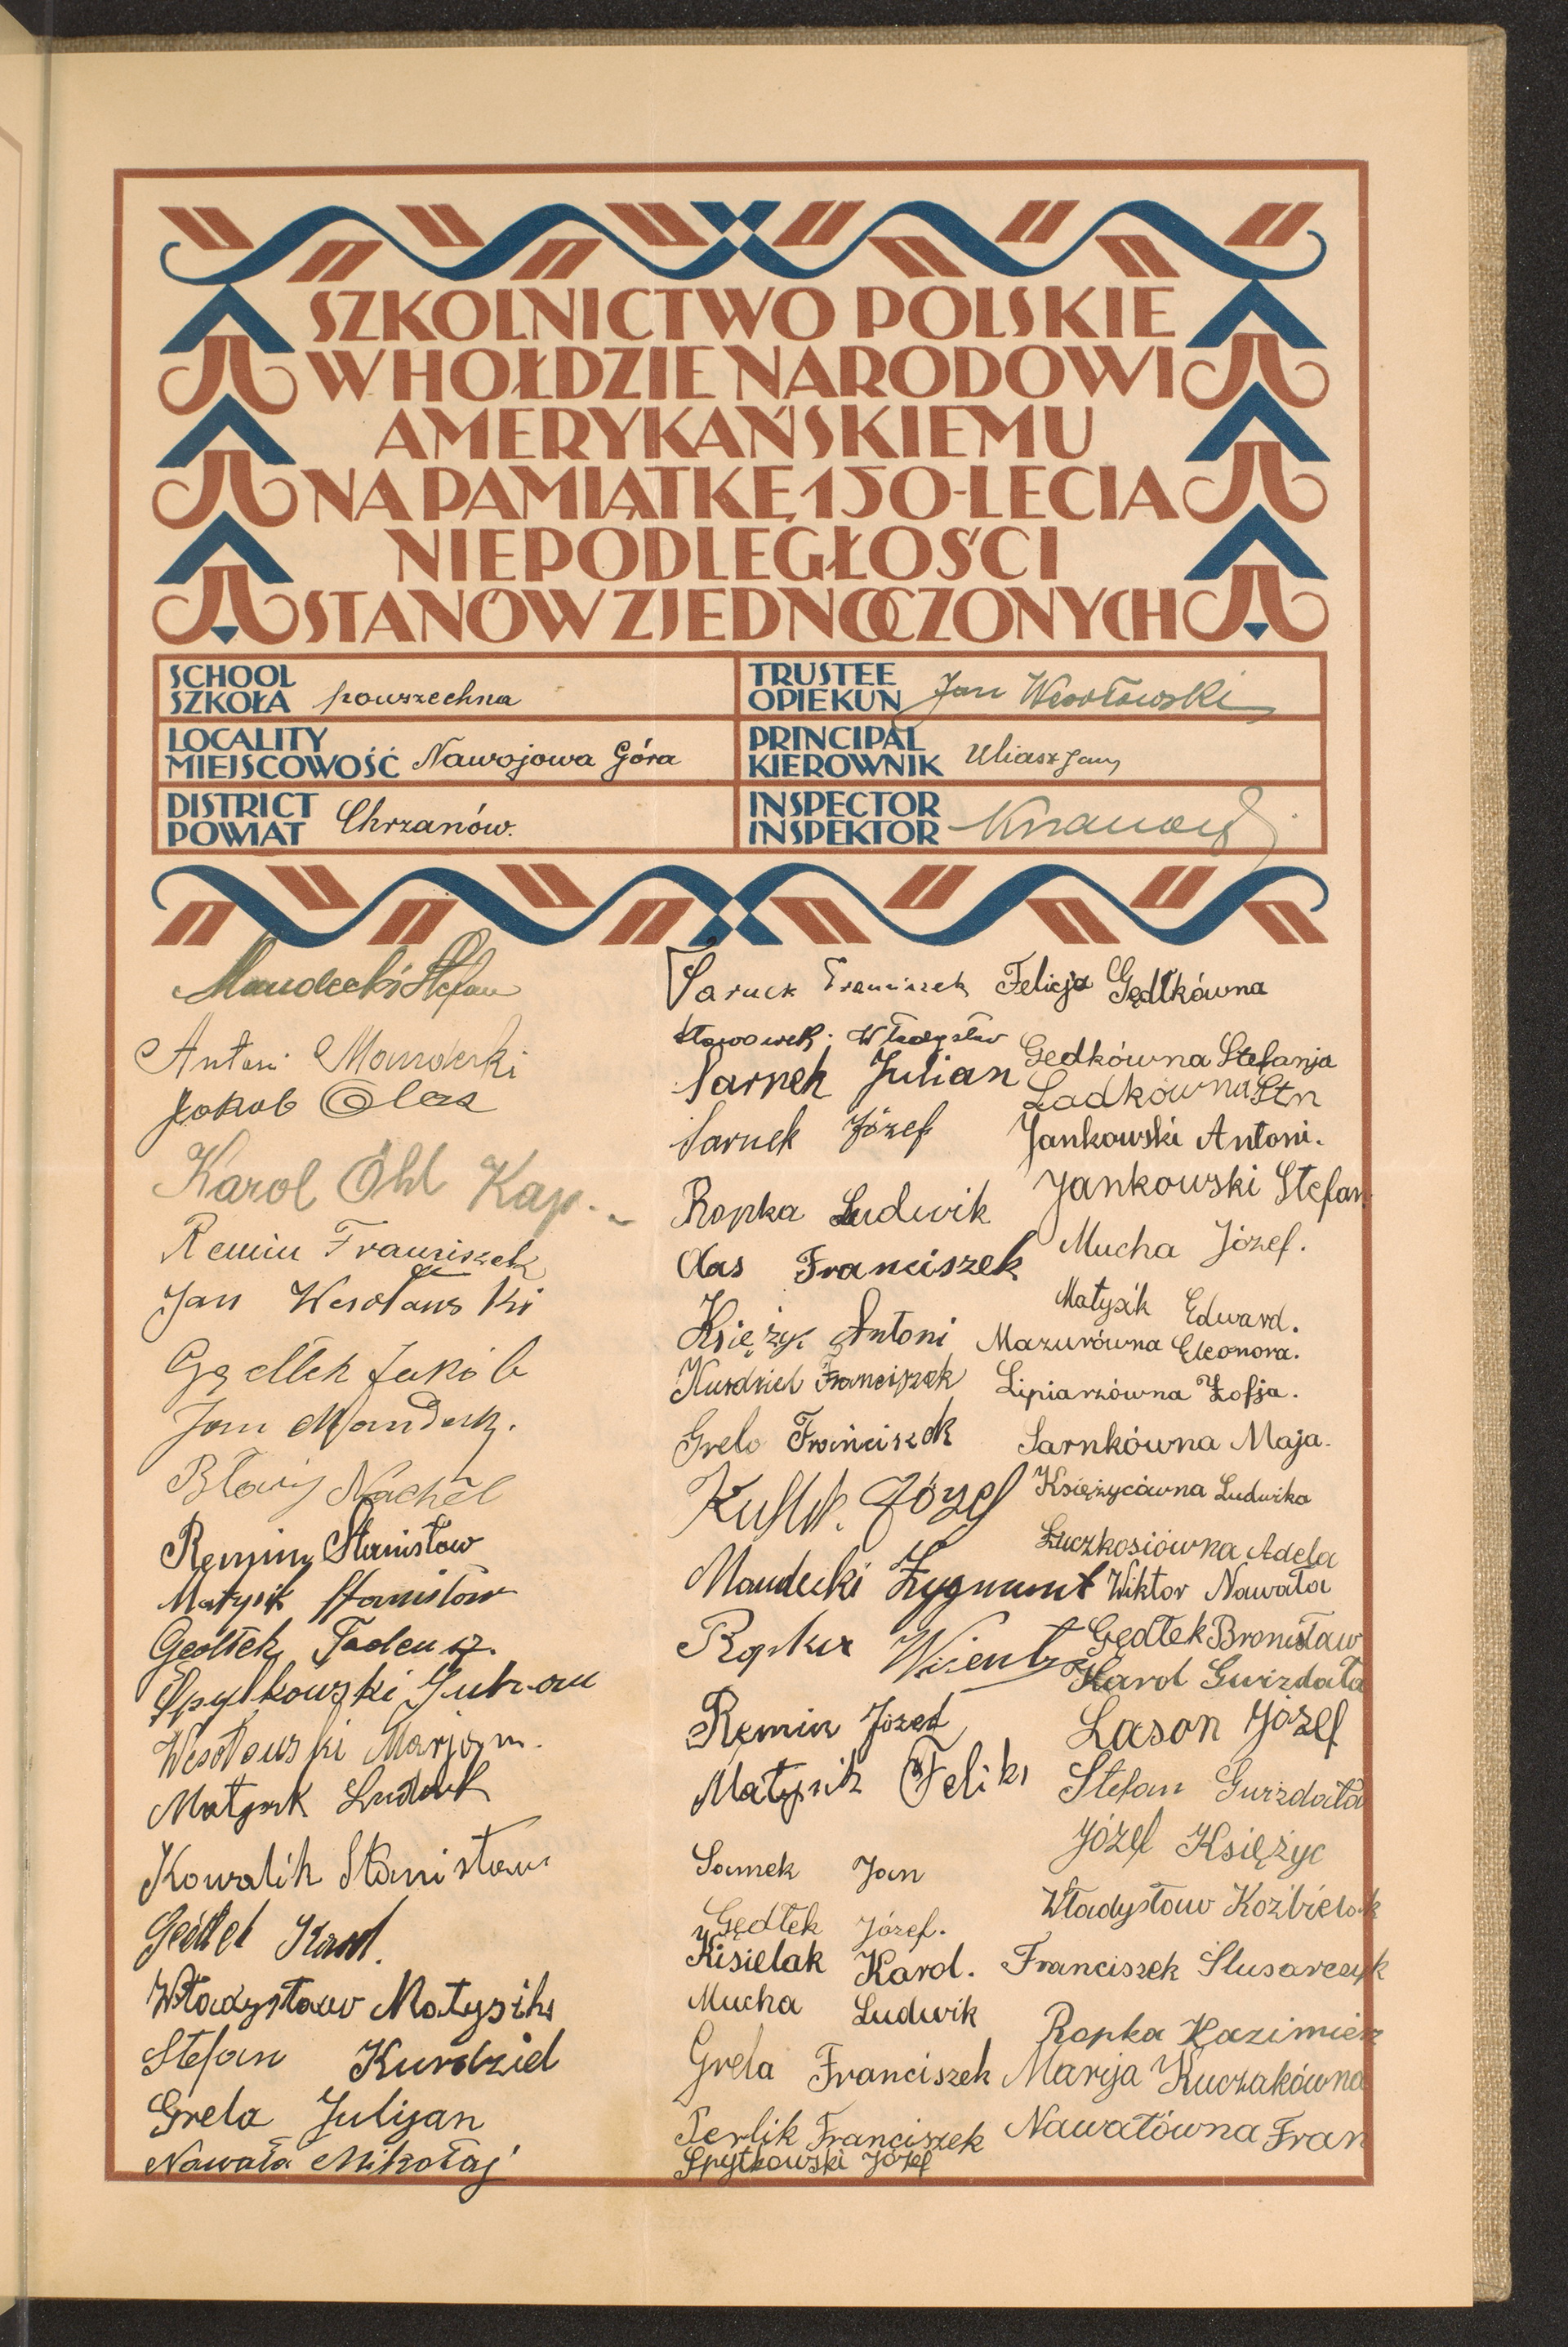 SZKOLNICTWO POLSKIE
W HOŁDZIE NARODOWI
AMERYKAŃSKIEMU
NA PAMIĄTKĘ 150-LECIA
NIEPODLEGŁOŚCI
STANÓW ZJEDNOCZONYCH
SCHOOL
SZKOŁA powszechna
LOCALITY
MIEJSCOWOŚĆ Nawojowa Góra
DISTRICT
POWIAT Chrzanów.
TRUSTEE
OPIEKUN Jan Wesołowski
PRINCIPAL
KIEROWNIK Uliasz Jan
INSPECTOR
INSPEKTOR
Mandecki Stefan
Antoni Manderki
Jakob Olas
Karol Öhl Kap.
Remin Franciszek
Jan Wesołowski
Gędłek Jakób
Jan
Nachel
Remin Stanisław
Matysik Stanisław
Gedłek Tadeusz.
Spytkowski
Wesołowski Marjan.
Matysik Ludwik
Kowalik Stanisław
Gędłek Karol.
Władysław Matysik
Stefan Kurdziel
Grela Julijan
Nawała Mikołaj
Sarnek Franciszek
Władysław
Sarnek Julian
Sarnek Józef
Ropka Ludwik
Olas Franciszek
Księżyc Antoni
Kurdziel Franciszek
Grela Franciszek
Józef
Mandecki Zygmunt
Ropka Wicenty
Remin Józef
Matysik Feliks
Sarnek Jan
Gędłek Józef.
Kisielak Karol.
Mucha Ludwik
Grela Franciszek
Perlik Franciszek
Spytkowski Józef
Felicja Gędłkówna
Gedkówna Stefanja
Ladkówna Stn
Jankowski Antoni.
Jankowski Stefan
Mucha Józef.
Matysik Edward.
Mazurówna Eleonora.
Lipiarzówna Zofja.
Sarnkówna Maja.
Księżycówna Ludwika
Łuczkosiówna Adela
Wiktor Nawała
Gędłek Bronisław
Karol Gwizdała
Lason Józef
Stefan Gwizdała
Józef Księżyc
Władysław Koźbielak
Franciszek Slusarczyk
Ropka Kazimierz
Marija Kuczakówna
Nawałówna Fran